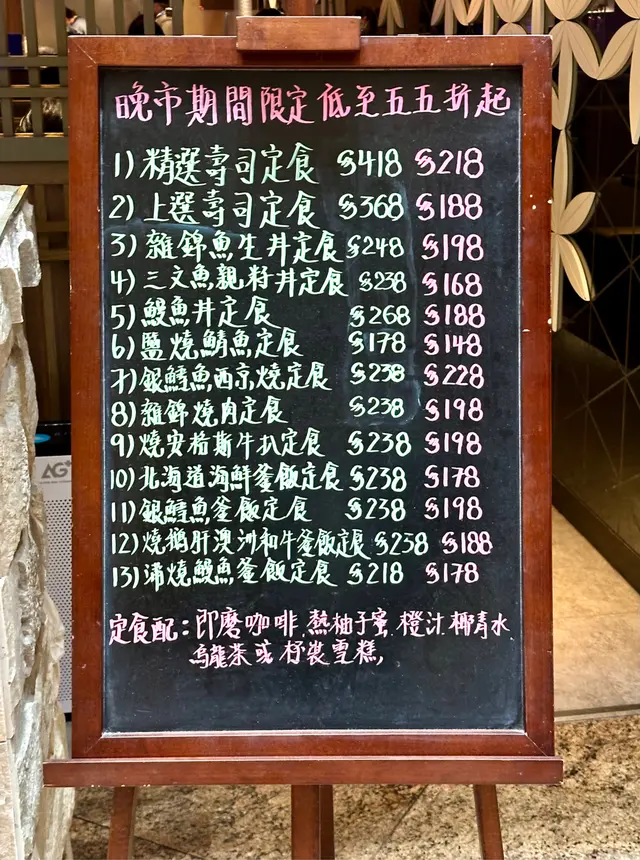 晚市期間限定低至五五折起
1) 精選壽司定食 $418 $218
2) 上選壽司定食 $368 $188
3) 雜錦魚生丼定食 $248 $198
4) 三文魚親籽丼定食 $238 $168
5) 鰻魚丼定食 $268 $188
6) 鹽燒鯖魚定食 $178 $148
7) 銀鱈魚西京燒定食 $238 $228
8) 雜錦燒肉定食 $238 $198
9) 燒安格斯牛扒定食 $238 $198
10) 北海道海鮮釜飯定食 $238 $178
11) 銀鱈魚釜飯定食 $238 $198
12) 燒鵝肝澳洲和牛釜飯定食 $238 $188
13) 蒲燒鰻魚釜飯定食 $218 $178
定食配：即磨咖啡, 熱柚子蜜, 橙汁, 椰青水
烏龍茶或杯裝雪糕,
AG+